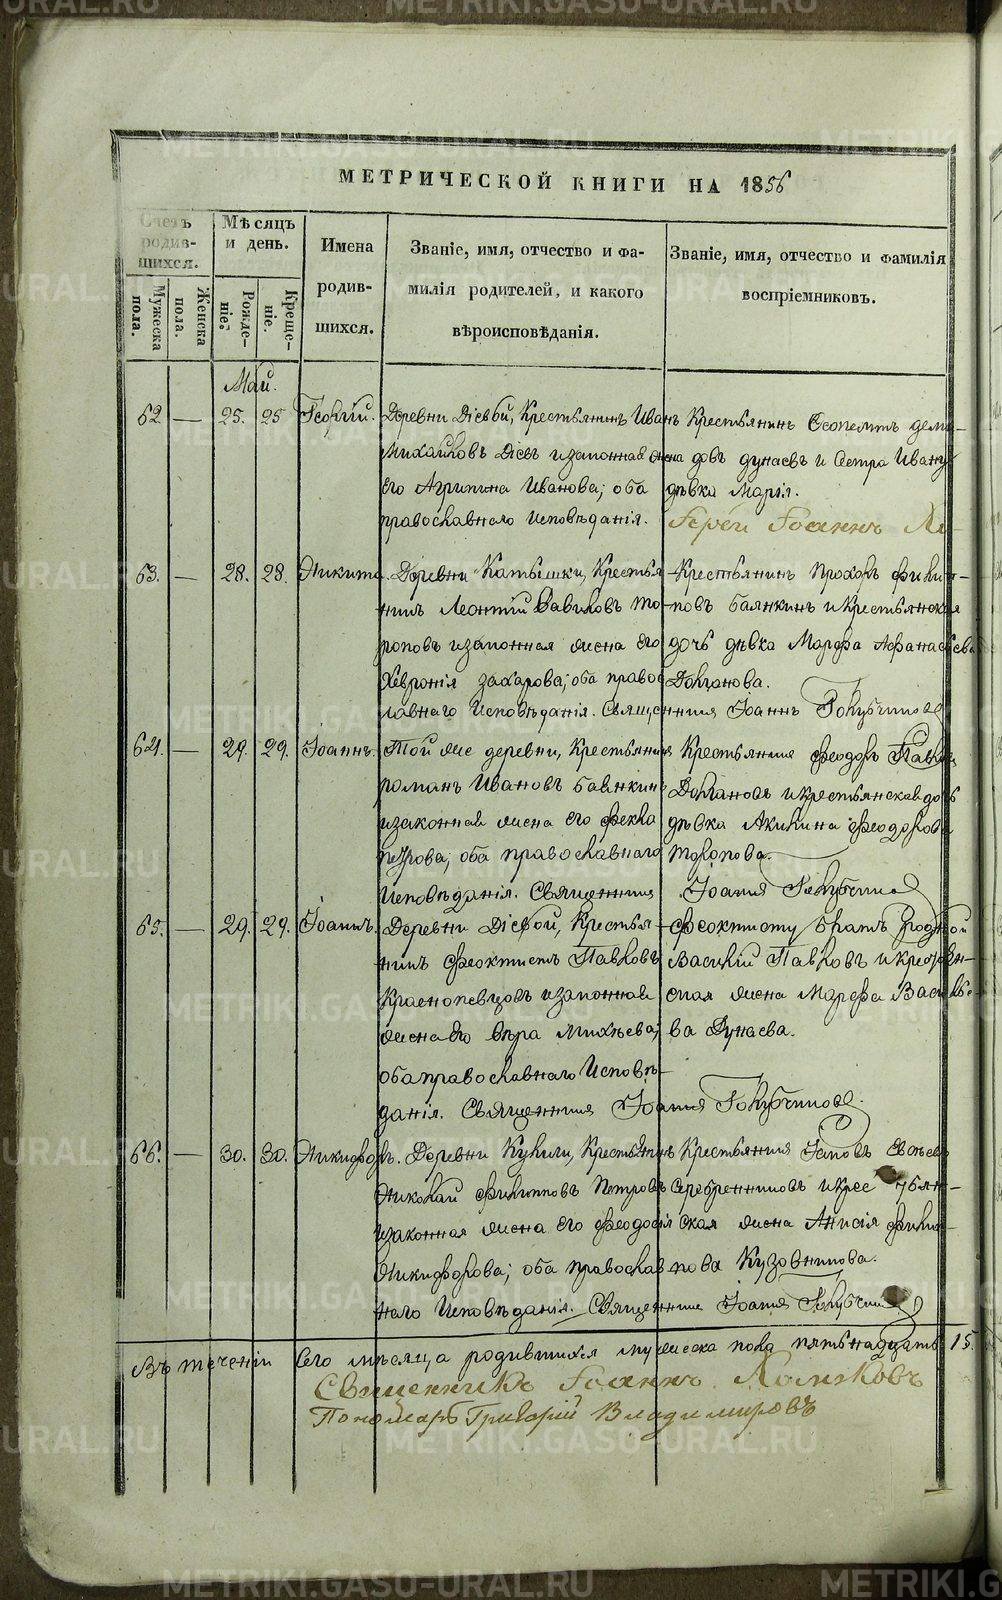 МЕТРИЧЕСКОЙ КНИГИ НА 1856
Счетъ родив-шихся.
Мужеска пола.
Женска пола.
Мѣсяцъ и день.
Рожде-ніе.
Креще-ніе.
Имена родив-шихся.
Званіе, имя, отчество и фа-
милія родителей, и какого
вѣроисповѣданія.
Званіе, имя, отчество и фамилія
воспріемниковъ.
Май.
62. — 25. 25 Георгій.
Деревни Діевой, Крестьянинъ Иванъ
Михайловъ Діевъ и законная жена
его Агрипина Иванова; оба
православнаго Исповѣданія.
Крестьянинъ деми-
довъ дунаевъ и Сестра Ивану
дѣвка Марія.
Іерей Іоаннъ
63. — 28. 28. Никита.
Деревни Катышки, Крестья-
нинъ Леонтій Савиновъ То-
роповъ и законная жена его
Хевронія захарова; оба правос
лавнаго Исповѣданія. Священникъ Іоаннъ
Крестьянинъ Прохоръ филип-
повъ Балнкинъ и крестьянская
дочь дѣвка Марфа Афанасьева
Долганова.
64. — 29. 29. Іоаннъ.
Той же деревни, Крестьянинъ
романъ Ивановъ Балнкинъ
и законная жена его фекла
петрова; оба православнаго
Исповѣданія. Священникъ Іоаннъ
Крестьянинъ феодоръ Павловъ
Долгановъ и крестьянская дочь
дѣвка Акилина феодорова
Торопова.
65. — 29. 29. Іоаннъ.
Деревни Діевой, Крестья-
нинъ феоктистъ Павловъ
Краснопевцовъ и законная
жена его вѣра михѣева;
оба православнаго Исповѣ-
данія. Священникъ Іоаннъ
феоктисту братъ родной
Василій Павловъ и крестьян-
ская жена Марфа Василье-
ва Дунаева.
66. — 30. 30. Никифоръ.
Деревни Кукили, Крестьянинъ
Николай филипповъ Петровъ
и законная жена его феодосія
Никифорова; оба православ
наго Исповѣданія. Священникъ Іоаннъ
Крестьянинъ Іаковъ Евсѣевъ
Серебренниковъ и крес
ская жена Анисія фили-
пова Кузовникова.
Въ теченіи Сего мѣсяца родившихся мужеска пола пятьнадцать 15.
Священникъ Іоаннъ
Пономарь Григорій Владимировъ
METRIKI.GASO-URAL.RU